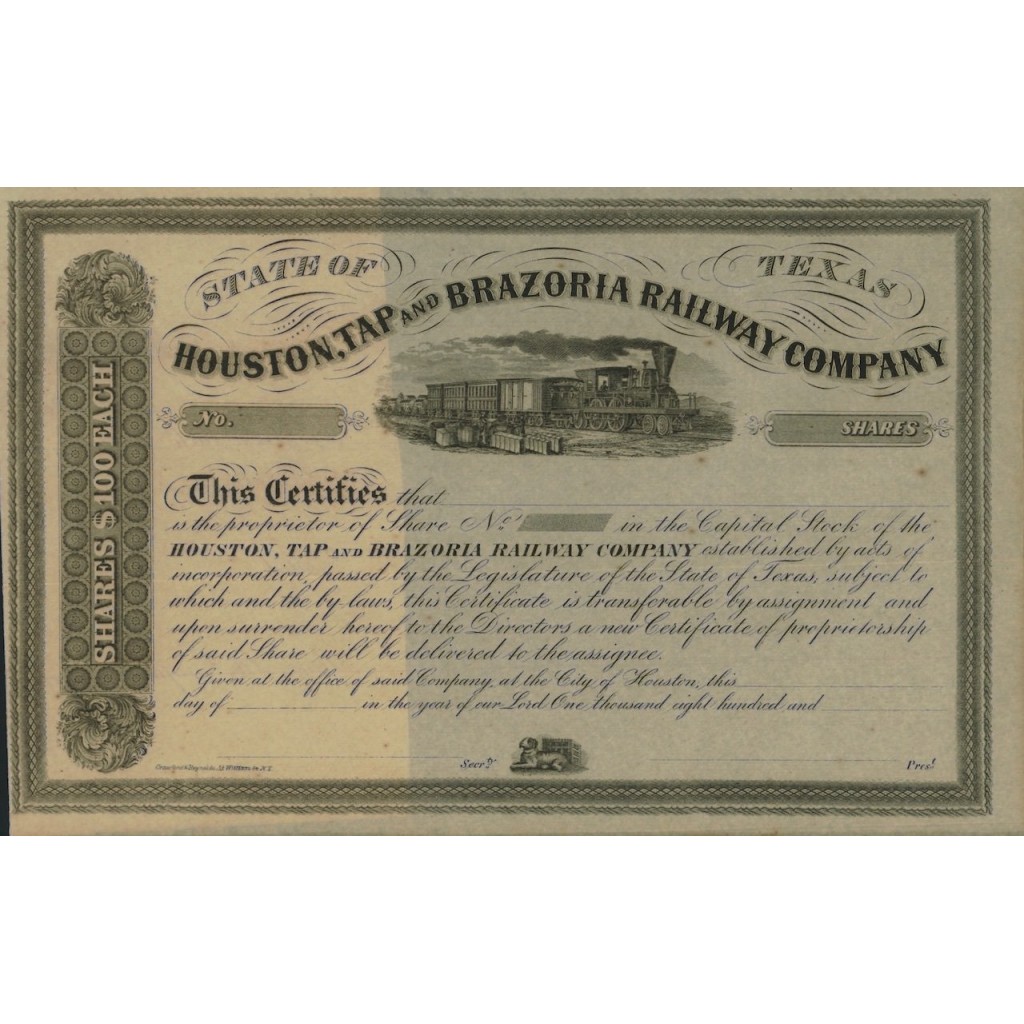 STATE OF TEXAS
HOUSTON, TAP AND BRAZORIA RAILWAY COMPANY
No.
SHARES
SHARES $100 EACH
This Certifies that
is the proprietor of Share No. in the Capital Stock of the
HOUSTON, TAP AND BRAZORIA RAILWAY COMPANY established by acts of
incorporation, passed by the Legislature of the State of Texas, subject to
which and the by-laws, this Certificate is transferable by assignment and
upon surrender hereof to the Directors a new Certificate of proprietorship
of said Share will be delivered to the assignee.
Given at the office of said Company, at the City of Houston, this
day of in the year of our Lord One thousand eight hundred and
Secry.
Prest.